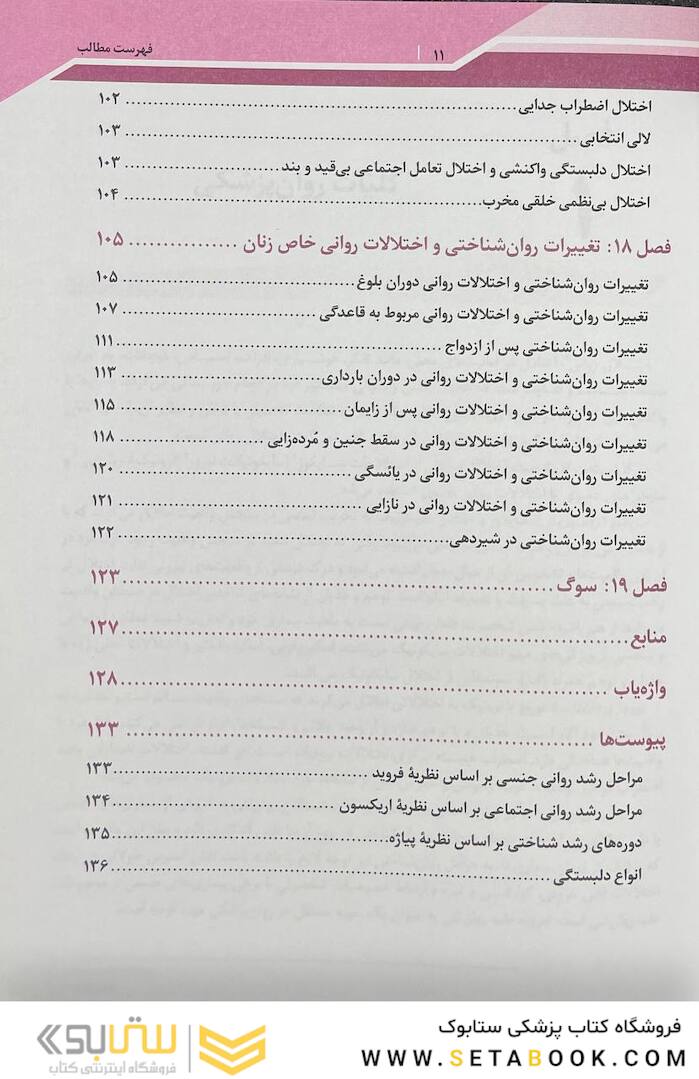 فهرست مطالب | ۱۱
اختلال اضطراب جدایی ........ ۱۰۲
لالی انتخابی ........ ۱۰۳
اختلال دلبستگی واکنشی و اختلال تعامل اجتماعی بی‌قید و بند ........ ۱۰۳
اختلال بی‌نظمی خلقی مخرب ........ ۱۰۴
فصل ۱۸: تغییرات روان‌شناختی و اختلالات روانی خاص زنان ........ ۱۰۵
تغییرات روان‌شناختی و اختلالات روانی دوران بلوغ ........ ۱۰۵
تغییرات روان‌شناختی و اختلالات روانی مربوط به قاعدگی ........ ۱۰۷
تغییرات روان‌شناختی پس از ازدواج ........ ۱۱۱
تغییرات روان‌شناختی و اختلالات روانی در دوران بارداری ........ ۱۱۳
تغییرات روان‌شناختی و اختلالات روانی پس از زایمان ........ ۱۱۵
تغییرات روان‌شناختی و اختلالات روانی در سقط جنین و مُرده‌زایی ........ ۱۱۸
تغییرات روان‌شناختی و اختلالات روانی در یائسگی ........ ۱۲۰
تغییرات روان‌شناختی و اختلالات روانی در نازایی ........ ۱۲۱
تغییرات روان‌شناختی در شیردهی ........ ۱۲۲
فصل ۱۹: سوگ ........ ۱۲۳
منابع ........ ۱۲۷
واژه‌یاب ........ ۱۲۸
پیوست‌ها ........ ۱۳۳
مراحل رشد روانی جنسی بر اساس نظریۀ فروید ........ ۱۳۳
مراحل رشد روانی اجتماعی بر اساس نظریۀ اریکسون ........ ۱۳۴
دوره‌های رشد شناختی بر اساس نظریۀ پیاژه ........ ۱۳۵
انواع دلبستگی ........ ۱۳۶
فروشگاه کتاب پزشکی ستابوک
WWW.SETABOOK.COM
ستابوک
فروشگاه اینترنتی کتاب